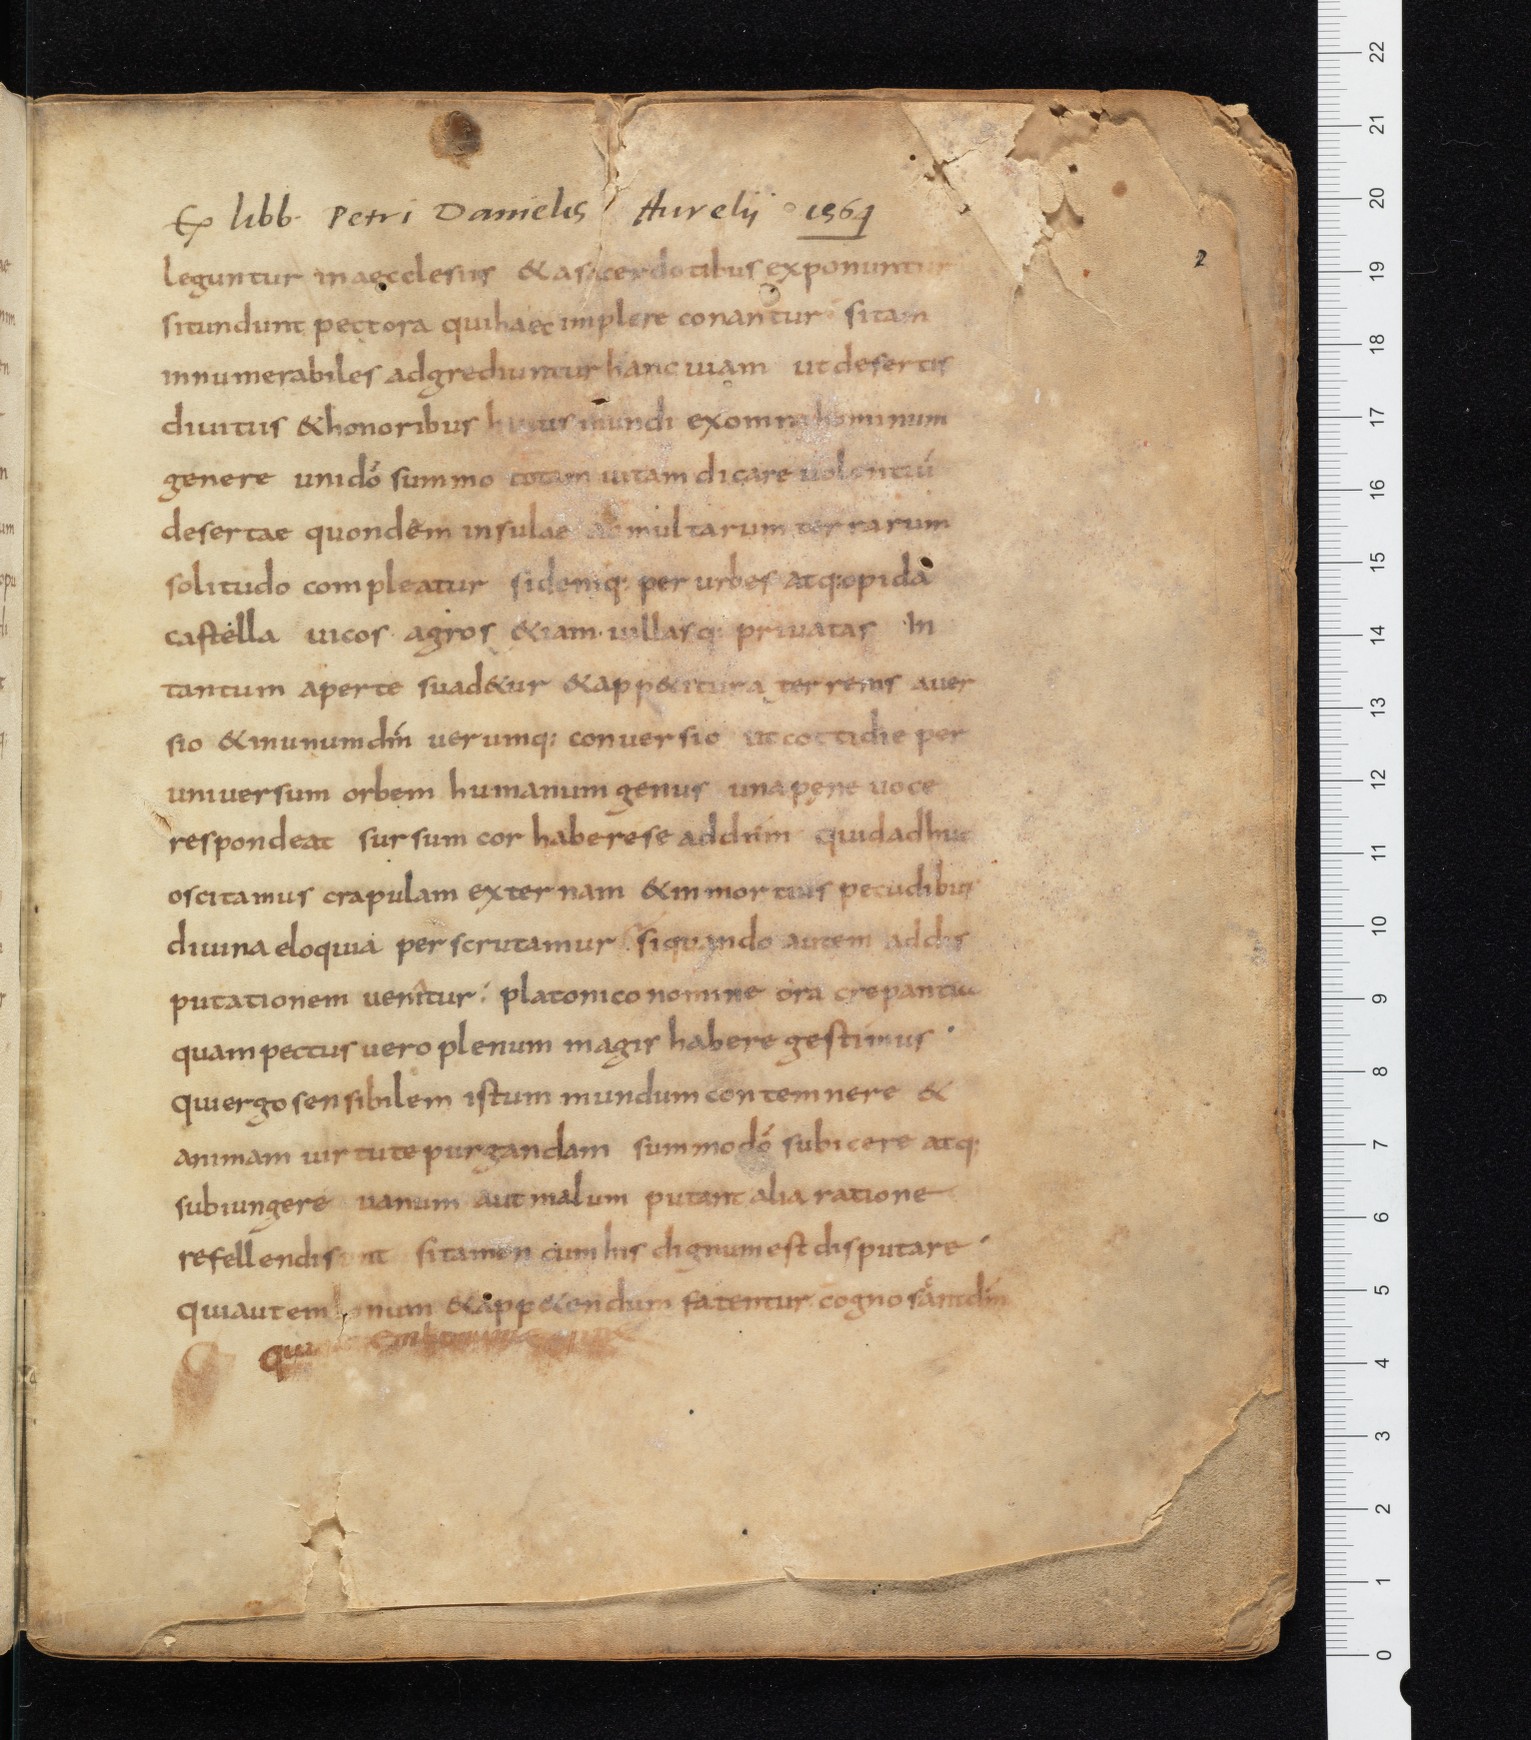 Ex libb. Petri Danielis Aurelii 1564
2
leguntur in aecclesiis & a sacerdotibus exponuntur
si tundunt pectora qui haec implere conantur si tam
innumerabiles adgrediuntur hanc uiam ut desertis
diuitiis & honoribus huius mundi ex omni hominum
genere uni dō summo totam uitam dicare uolentiū
desertae quondem insulae ac multarum terrarum
solitudo compleatur si deniq: per urbes atq: opida
castella uicos agros &iam uillasq: priuatas In
tantum aperte suad&ur & app&itura terrenis auer
sio & in unum dm̄ uerumq: conuersio ut cottidie per
uniuersum orbem humanum genus una pene uoce
respondeat sursum cor habere se ad dnm̄ quid adhuc
oscitamus crapulam externam & in mortuis pecudibus
diuina eloquia perscrutamur si quando autem ad dis
putationem venitur platonico nomine ora crepantia
quam pectus uero plenum magis habere gestimus
Qui ergo sensibilem istum mundum contemnere &
animam uirtute purgandam summo dō subicere atq:
subiungere uanum aut malum putant alia ratione
refellendi sunt si tamen cum his dignum est disputare
Qui autem bonum & app&endum fatentur cognoscant dm̄
Qui